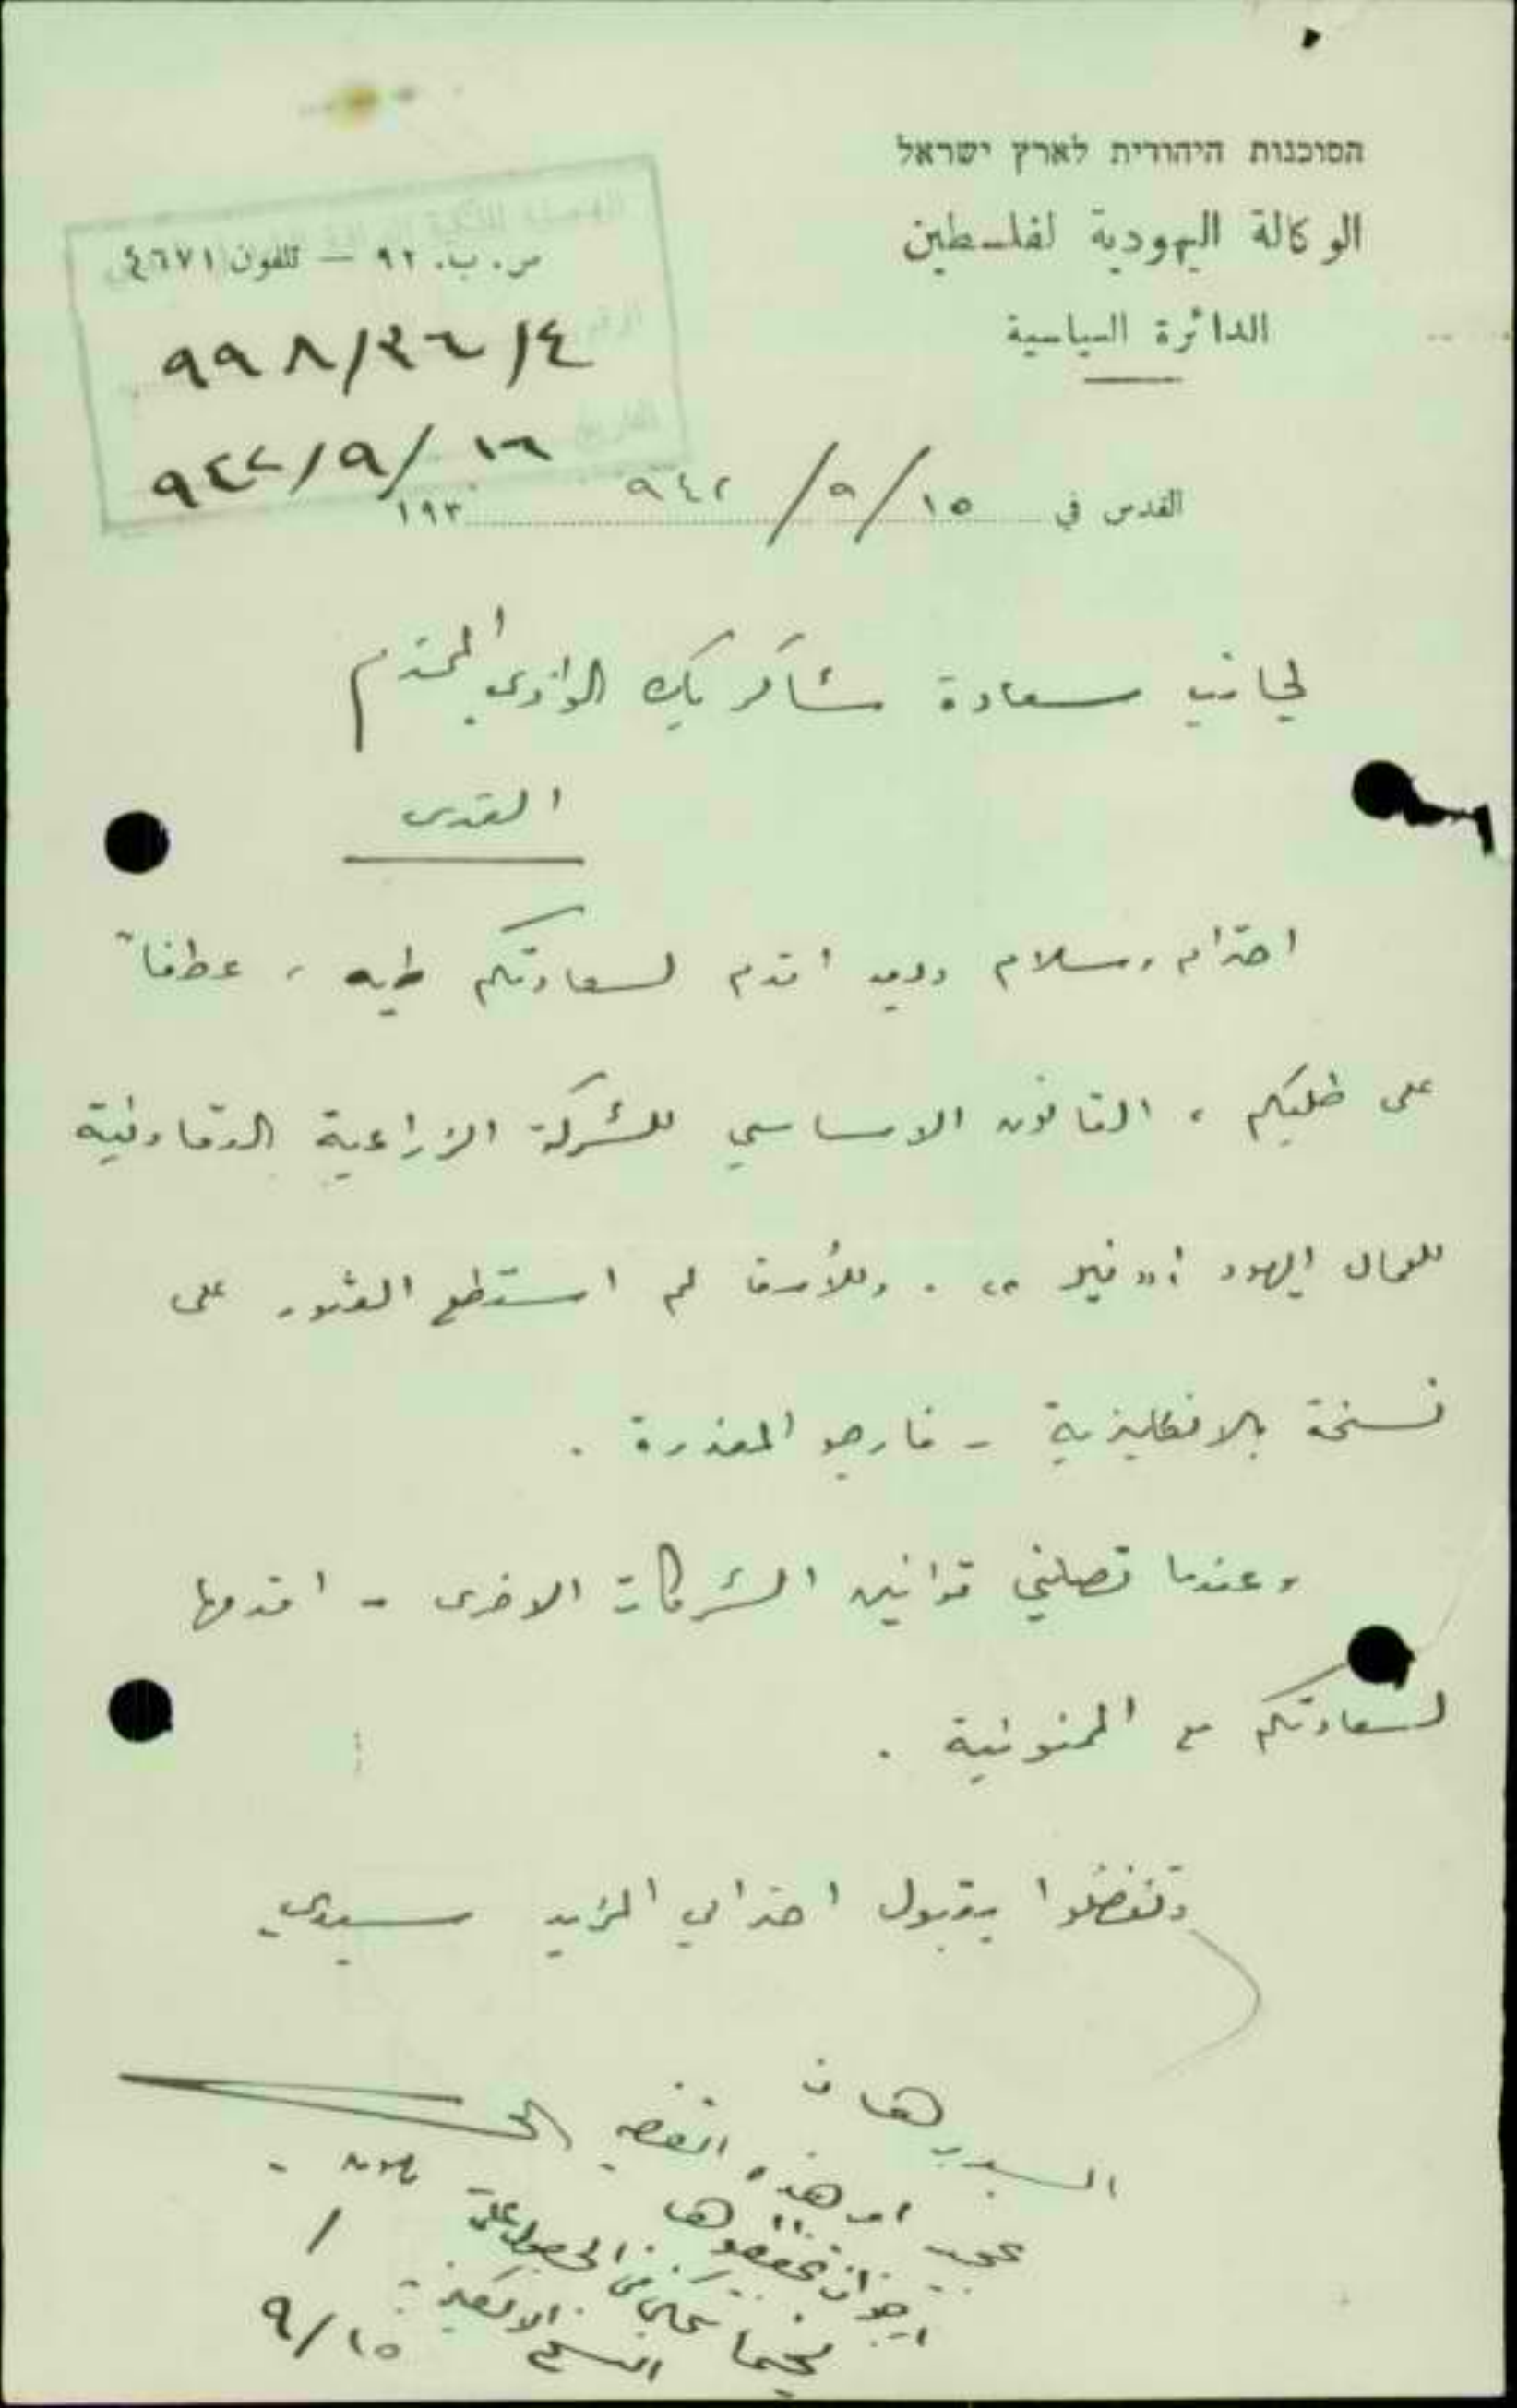 הסוכנות היהודית לארץ ישראל
الوكالة اليهودية لفلسطين
الدائرة السياسية
ص. ب. ٩٢ — تلفون ٤٦٧١
الرقم
٩٩٨/٣٦/٤
التاريخ
٩٤٢/٩/١٦
القدس في ١٥/٩/٩٤٢ ١٩٣
لجانب سعادة شاكر بك الوادي المحترم
القدس
احترام وسلام وبعد اقدم لسعادتكم طيه ، عطفاً
على طلبكم ، القانون الاساسي للشركة الزراعية التعاونية
للعمال اليهود "نير" . وللأسف لم استطع العثور على
نسخة بالانكليزية - فارجو المعذرة .
وعندما تصلني قوانين الشركات الاخرى - اقدمها
لسعادتكم مع الممنونية .
وتفضلوا بقبول احترامي المزيد سيدي
السيد
هذه
ارجو ان تحفظوها
الحصول على
النسخ الانكليزية
٩/١٥